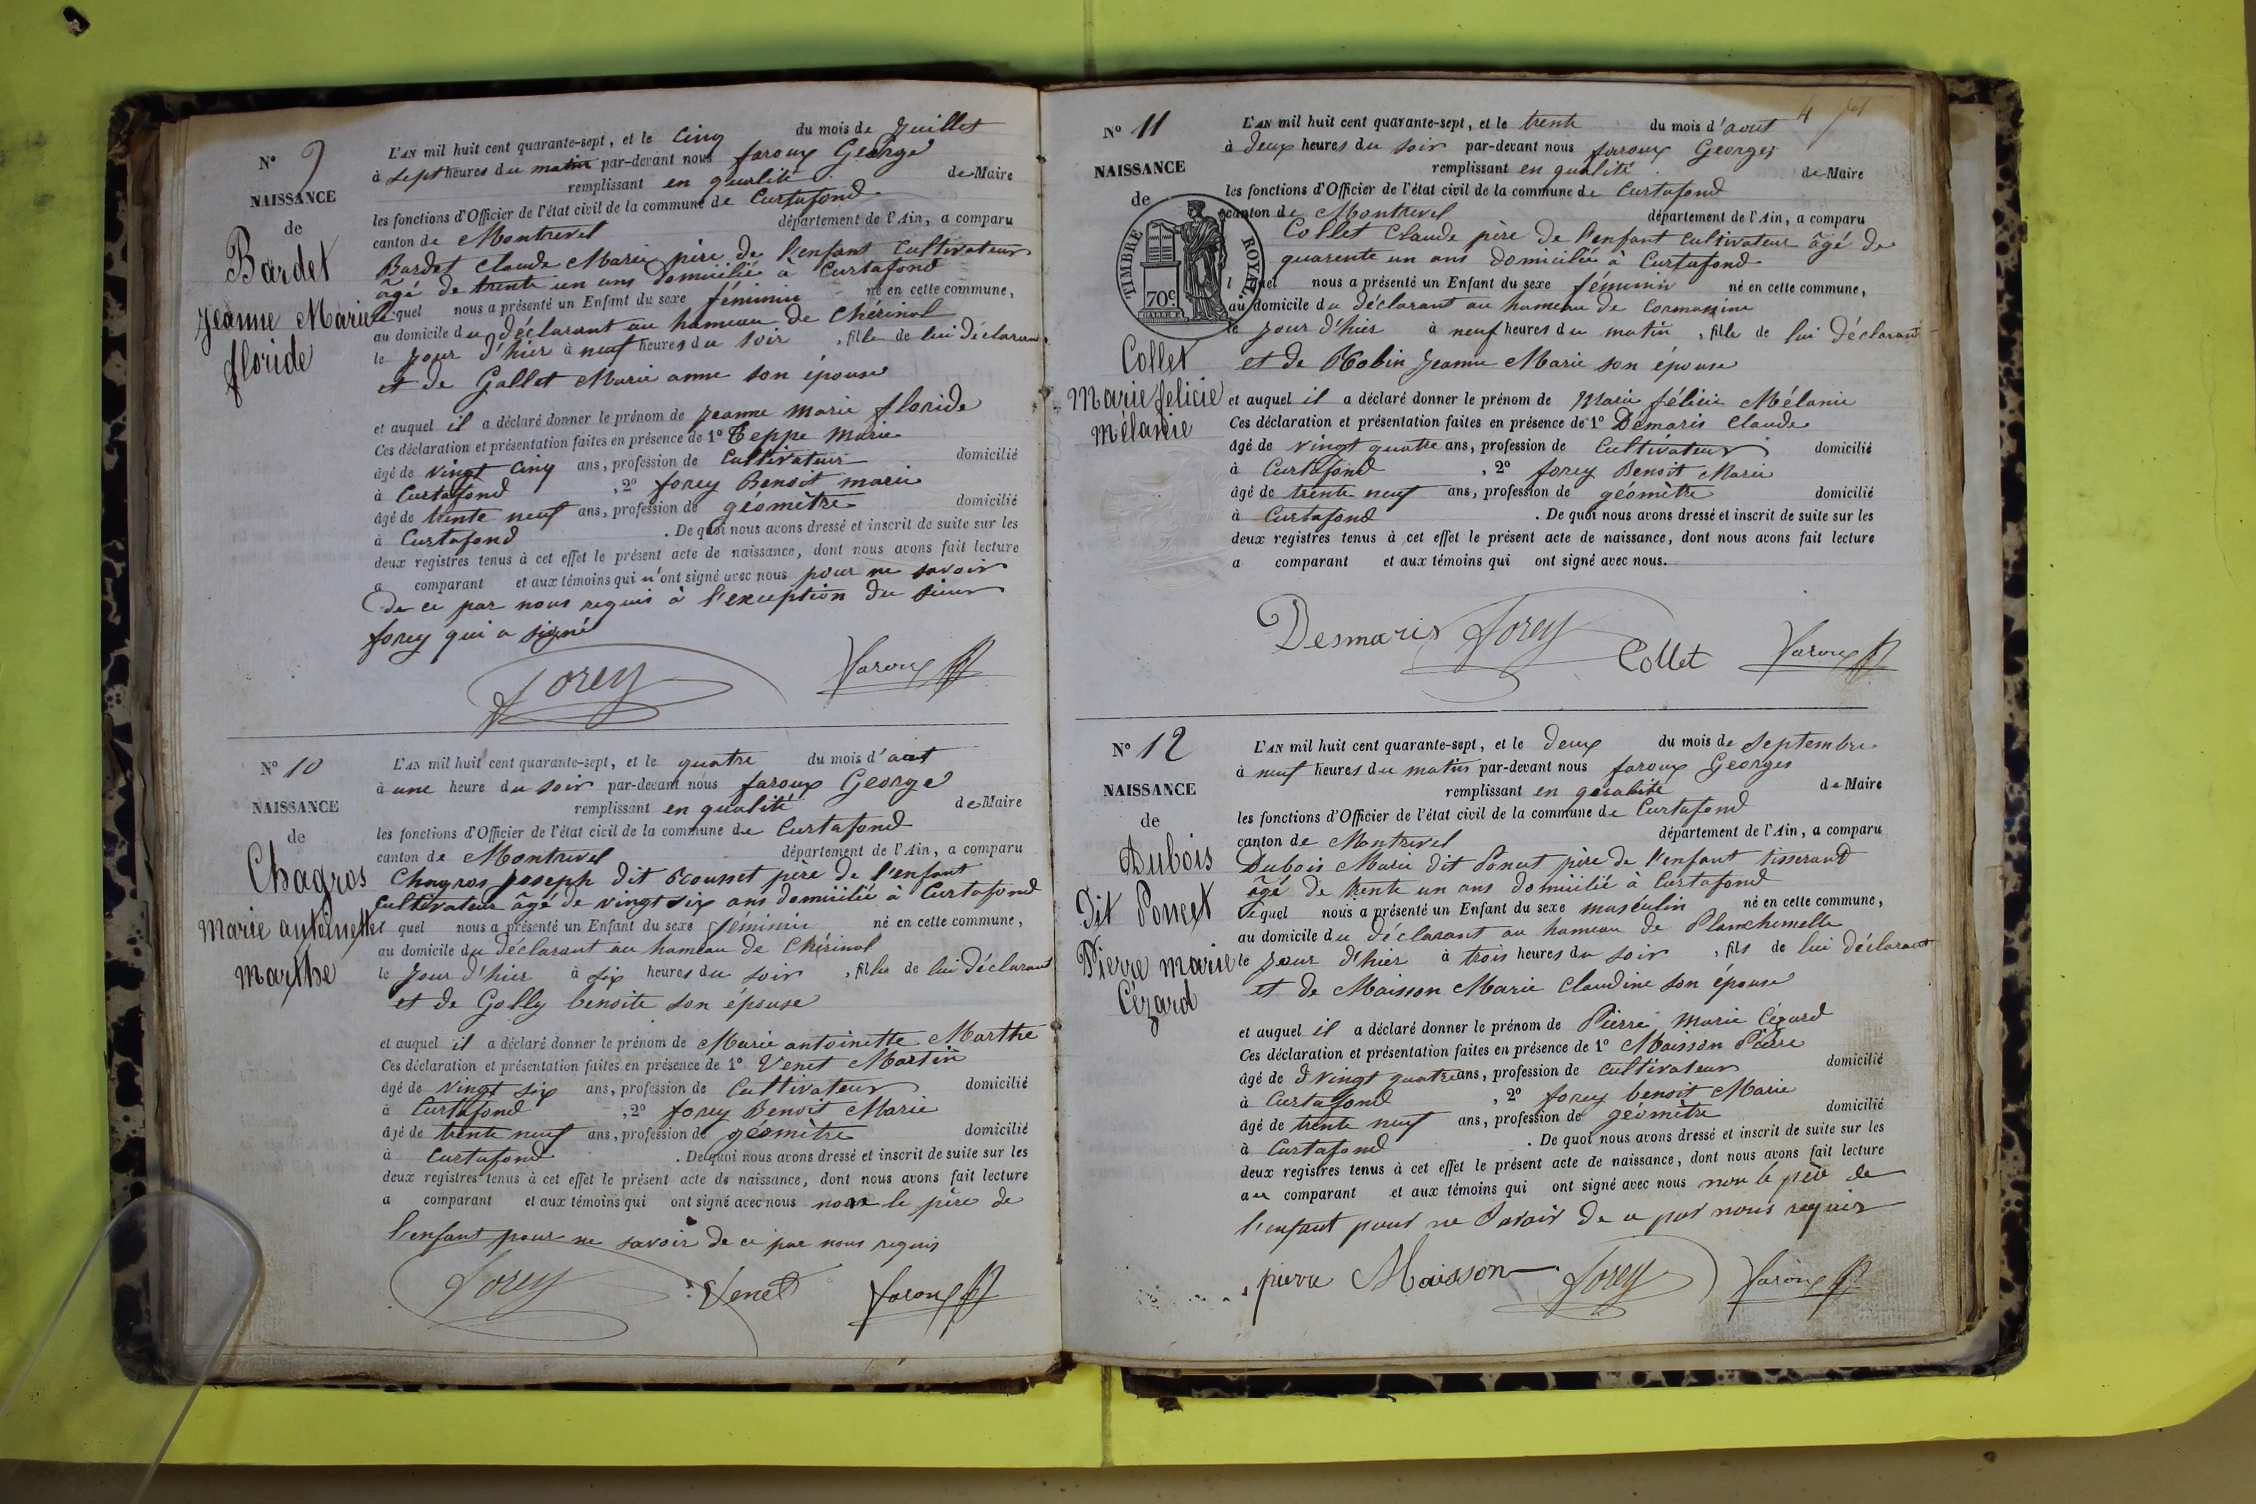 N° 9
NAISSANCE
de
Bardet
Jeanne Marie
floride
L'AN mil huit cent quarante-sept, et le cinq du mois de Juillet
à sept heures du matin par-devant nous faroux George
remplissant en qualité de Maire
les fonctions d'Officier de l'état civil de la commune de Curtafond
canton de Montrevel département de l'Ain, a comparu
Bardet Claude Marie père de l'enfant Cultivateur
âgé de trente un ans domicilié à Curtafond
lequel nous a présenté un Enfant du sexe féminin né en cette commune,
au domicile du déclarant au hameau de Chérinal
le jour d'hier à neuf heures du soir, fille de lui déclarant
et de Gallet Marie anne son épouse
et auquel il a déclaré donner le prénom de Jeanne Marie floride
Ces déclaration et présentation faites en présence de 1° Teppe Marie
âgé de vingt cinq ans, profession de Cultivateur domicilié
à Curtafond, 2° forey Benoit marie
âgé de trente neuf ans, profession de géomètre domicilié
à Curtafond. De quoi nous avons dressé et inscrit de suite sur les
deux registres tenus à cet effet le présent acte de naissance, dont nous avons fait lecture
a comparant et aux témoins qui n'ont signé avec nous pour ne savoir
de ce par nous requis à l'exception du sieur
forey qui a signé
Forey faroux
N° 10
NAISSANCE
de
Chagros
Marie antoinette
Marthe
L'AN mil huit cent quarante-sept, et le quatre du mois d'aout
à une heure du soir par-devant nous faroux George
remplissant en qualité de Maire
les fonctions d'Officier de l'état civil de la commune de Curtafond
canton de Montrevel département de l'Ain, a comparu
Chagros Joseph dit Rousset père de l'enfant
Cultivateur âgé de vingt six ans domicilié à Curtafond
quel nous a présenté un Enfant du sexe féminin né en cette commune,
au domicile du déclarant au hameau de Chérinal
le jour d'hier à six heures du soir, fille de lui déclarant
et de Golly benoite son épouse
et auquel il a déclaré donner le prénom de Marie antoinette Marthe
Ces déclaration et présentation faites en présence de 1° Venet Martin
âgé de vingt six ans, profession de Cultivateur domicilié
à Curtafond, 2° forey Benoit Marie
âgé de trente neuf ans, profession de géomètre domicilié
à Curtafond. De quoi nous avons dressé et inscrit de suite sur les
deux registres tenus à cet effet le présent acte de naissance, dont nous avons fait lecture
a comparant et aux témoins qui ont signé avec nous non le père de
l'enfant pour ne savoir de ce par nous requis
Forey Venet faroux
4
N° 11
NAISSANCE
de
TIMBRE ROYAL
70c
Collet
Marie félicie
Mélanie
L'AN mil huit cent quarante-sept, et le trente du mois d'aout
à deux heures du soir par-devant nous faroux Georges
remplissant en qualité de Maire
les fonctions d'Officier de l'état civil de la commune de Curtafond
canton de Montrevel département de l'Ain, a comparu
Collet Claude père de l'enfant Cultivateur âgé de
quarente un ans domicilié à Curtafond
l quel nous a présenté un Enfant du sexe féminin né en cette commune,
au domicile du déclarant au hameau de
le jour d'hier à neuf heures du matin, fille de lui déclarant
et de Robin Jeanne Marie son épouse
et auquel il a déclaré donner le prénom de Marie félicie Mélanie
Ces déclaration et présentation faites en présence de 1° Demaris Claude
âgé de vingt quatre ans, profession de Cultivateur domicilié
à Curtafond, 2° forey Benoit Marie
âgé de trente neuf ans, profession de géomètre domicilié
à Curtafond. De quoi nous avons dressé et inscrit de suite sur les
deux registres tenus à cet effet le présent acte de naissance, dont nous avons fait lecture
a comparant et aux témoins qui ont signé avec nous.
Desmaris Forey Collet faroux
N° 12
NAISSANCE
de
Dubois
Dit Poncet
Pierre marie
Cézard
L'AN mil huit cent quarante-sept, et le deux du mois de septembre
à neuf heures du matin par-devant nous faroux Georges
remplissant en qualité de Maire
les fonctions d'Officier de l'état civil de la commune de Curtafond
canton de Montrevel département de l'Ain, a comparu
Dubois Marie dit Poncet père de l'enfant tisserand
âgé de trente un ans domicilié à Curtafond
lequel nous a présenté un Enfant du sexe masculin né en cette commune,
au domicile du déclarant au hameau de Planchemelle
le jour d'hier à trois heures du soir, fils de lui déclarant
et de Maisson Marie Claudine son épouse
et auquel il a déclaré donner le prénom de Pierre Marie Cézard
Ces déclaration et présentation faites en présence de 1° Maisson Pierre
âgé de vingt quatre ans, profession de cultivateur domicilié
à Curtafond, 2° forey benoit Marie
âgé de trente neuf ans, profession de géomètre domicilié
à Curtafond. De quoi nous avons dressé et inscrit de suite sur les
deux registres tenus à cet effet le présent acte de naissance, dont nous avons fait lecture
au comparant et aux témoins qui ont signé avec nous non le père de
l'enfant pour ne savoir de ce par nous requis
pierre Maisson Forey faroux